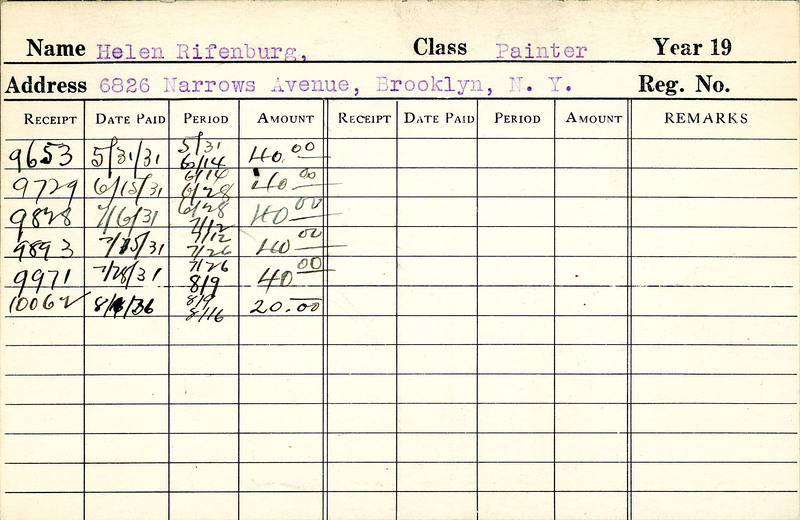 Name Helen Rifenburg, Class Painter Year 19
Address 6826 Narrows Avenue, Brooklyn, N. Y. Reg. No.
RECEIPT DATE PAID PERIOD AMOUNT RECEIPT DATE PAID PERIOD AMOUNT REMARKS
9653 5/31/31 5/31 6/14 40.00
9729 6/15/31 6/14 6/28 40.00
9828 7/6/31 6/28 7/12 40.00
9893 7/15/31 7/12 7/26 40.00
9971 7/28/31 7/26 8/9 40.00
10062 8/9 8/16 20.00